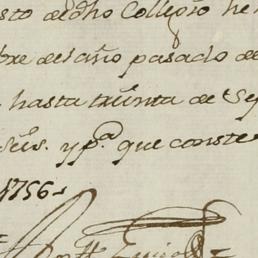 sto de dho Collegio he
bre del año pasado de
hasta treinta de Se
sus. y pª que conste
1756